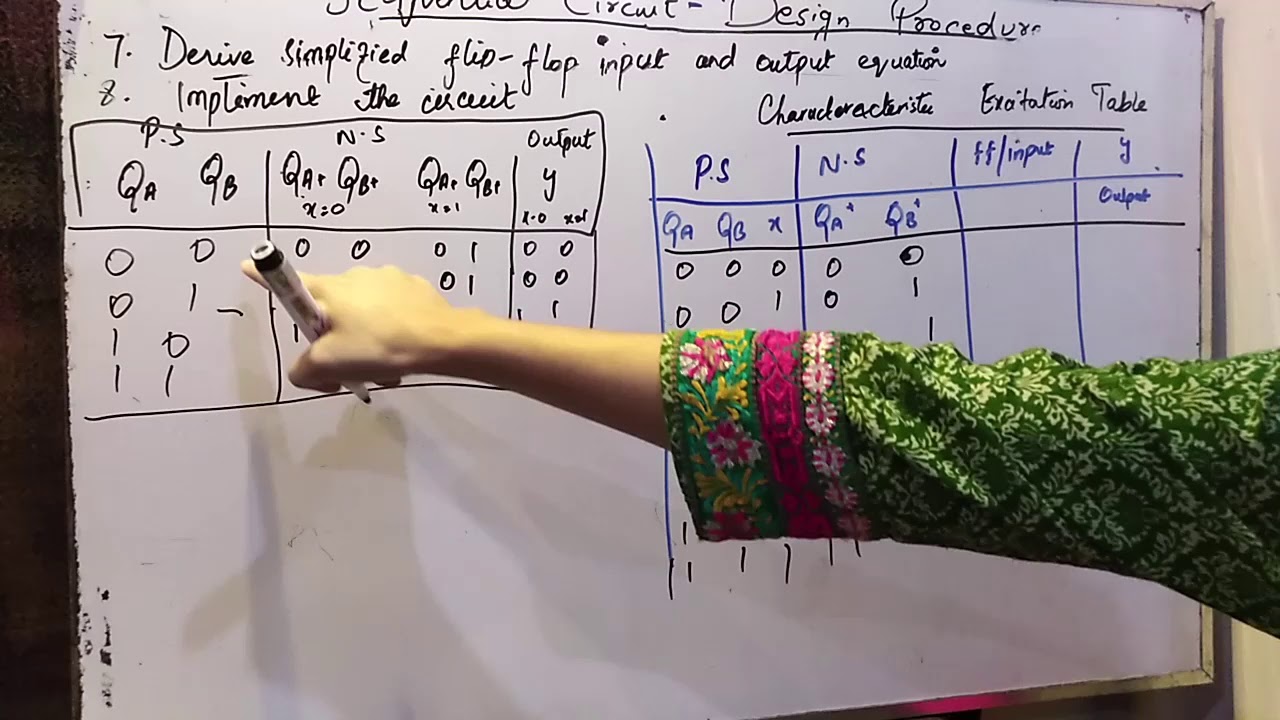 Circuit - Design Procedure
7. Derive simplified flip-flop input and output equation
8. Implement the circuit
P.S N.S Output
QA QB QA+ QB+ QA+ QB+ y
x=0 x=1 x=0 x=1
0 0 0 0 0 1 0 0
0 1 0 1 0 0
1 0 1 1
1 1
Characteracteristic Excitation Table
P.S N.S ff/input y
Output
QA QB x QA+ QB+
0 0 0 0 0
0 0 1 0 1
1
1
1 1 1 1 1